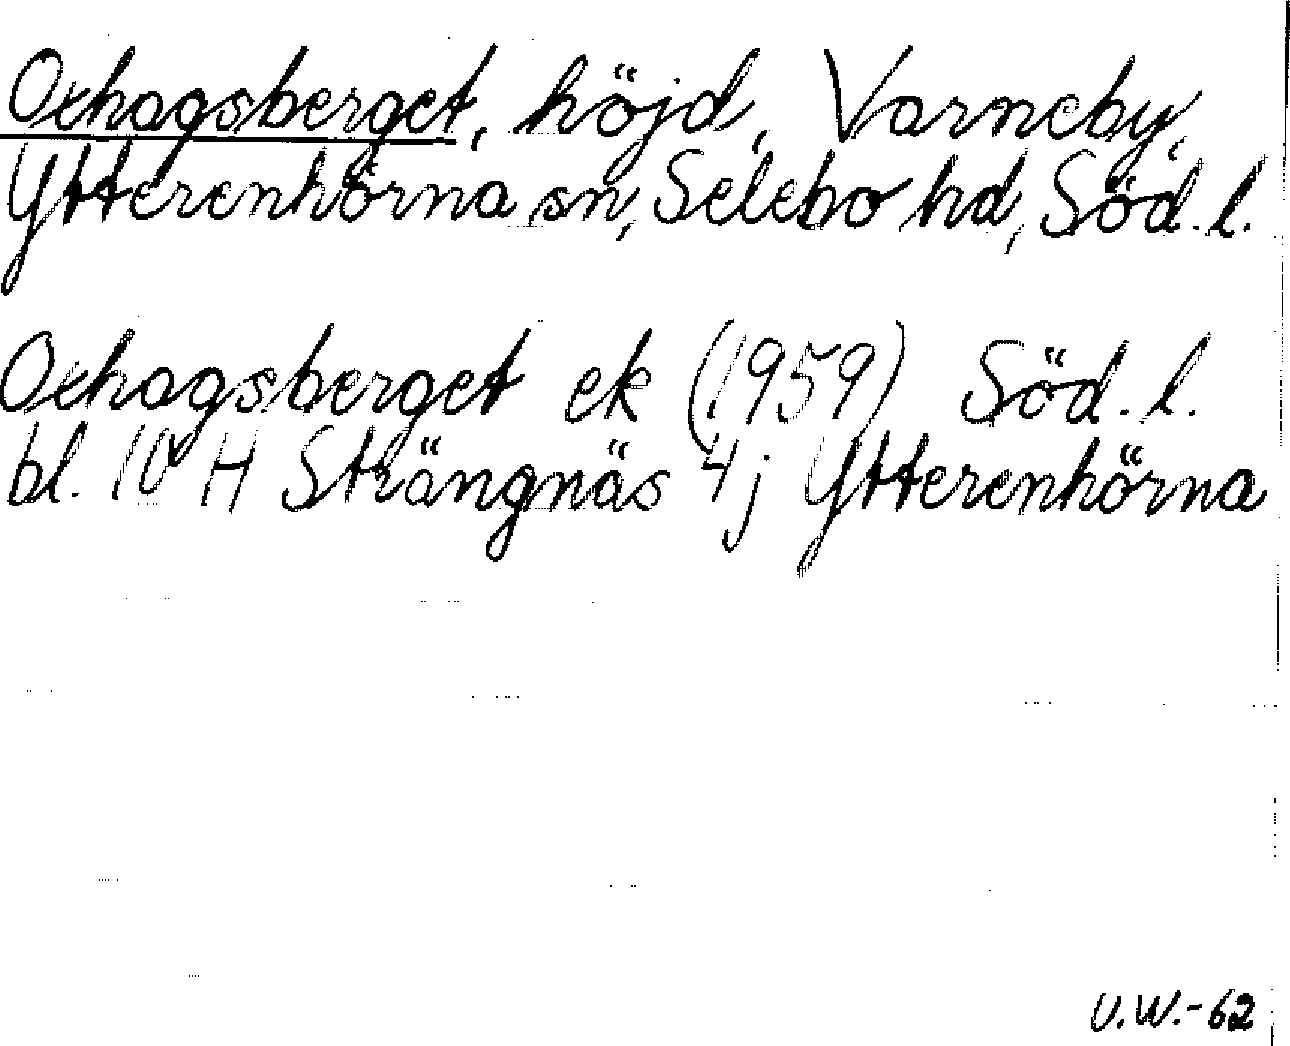 Oxhagsberget, höjd, Varneby,
Ytterenhörna sn, Selebo hd, Söd. l.
Oxhagsberget ek (1959) Söd. l.
bl. 10 H Strängnäs 4j Ytterenhörna
U.W.-62